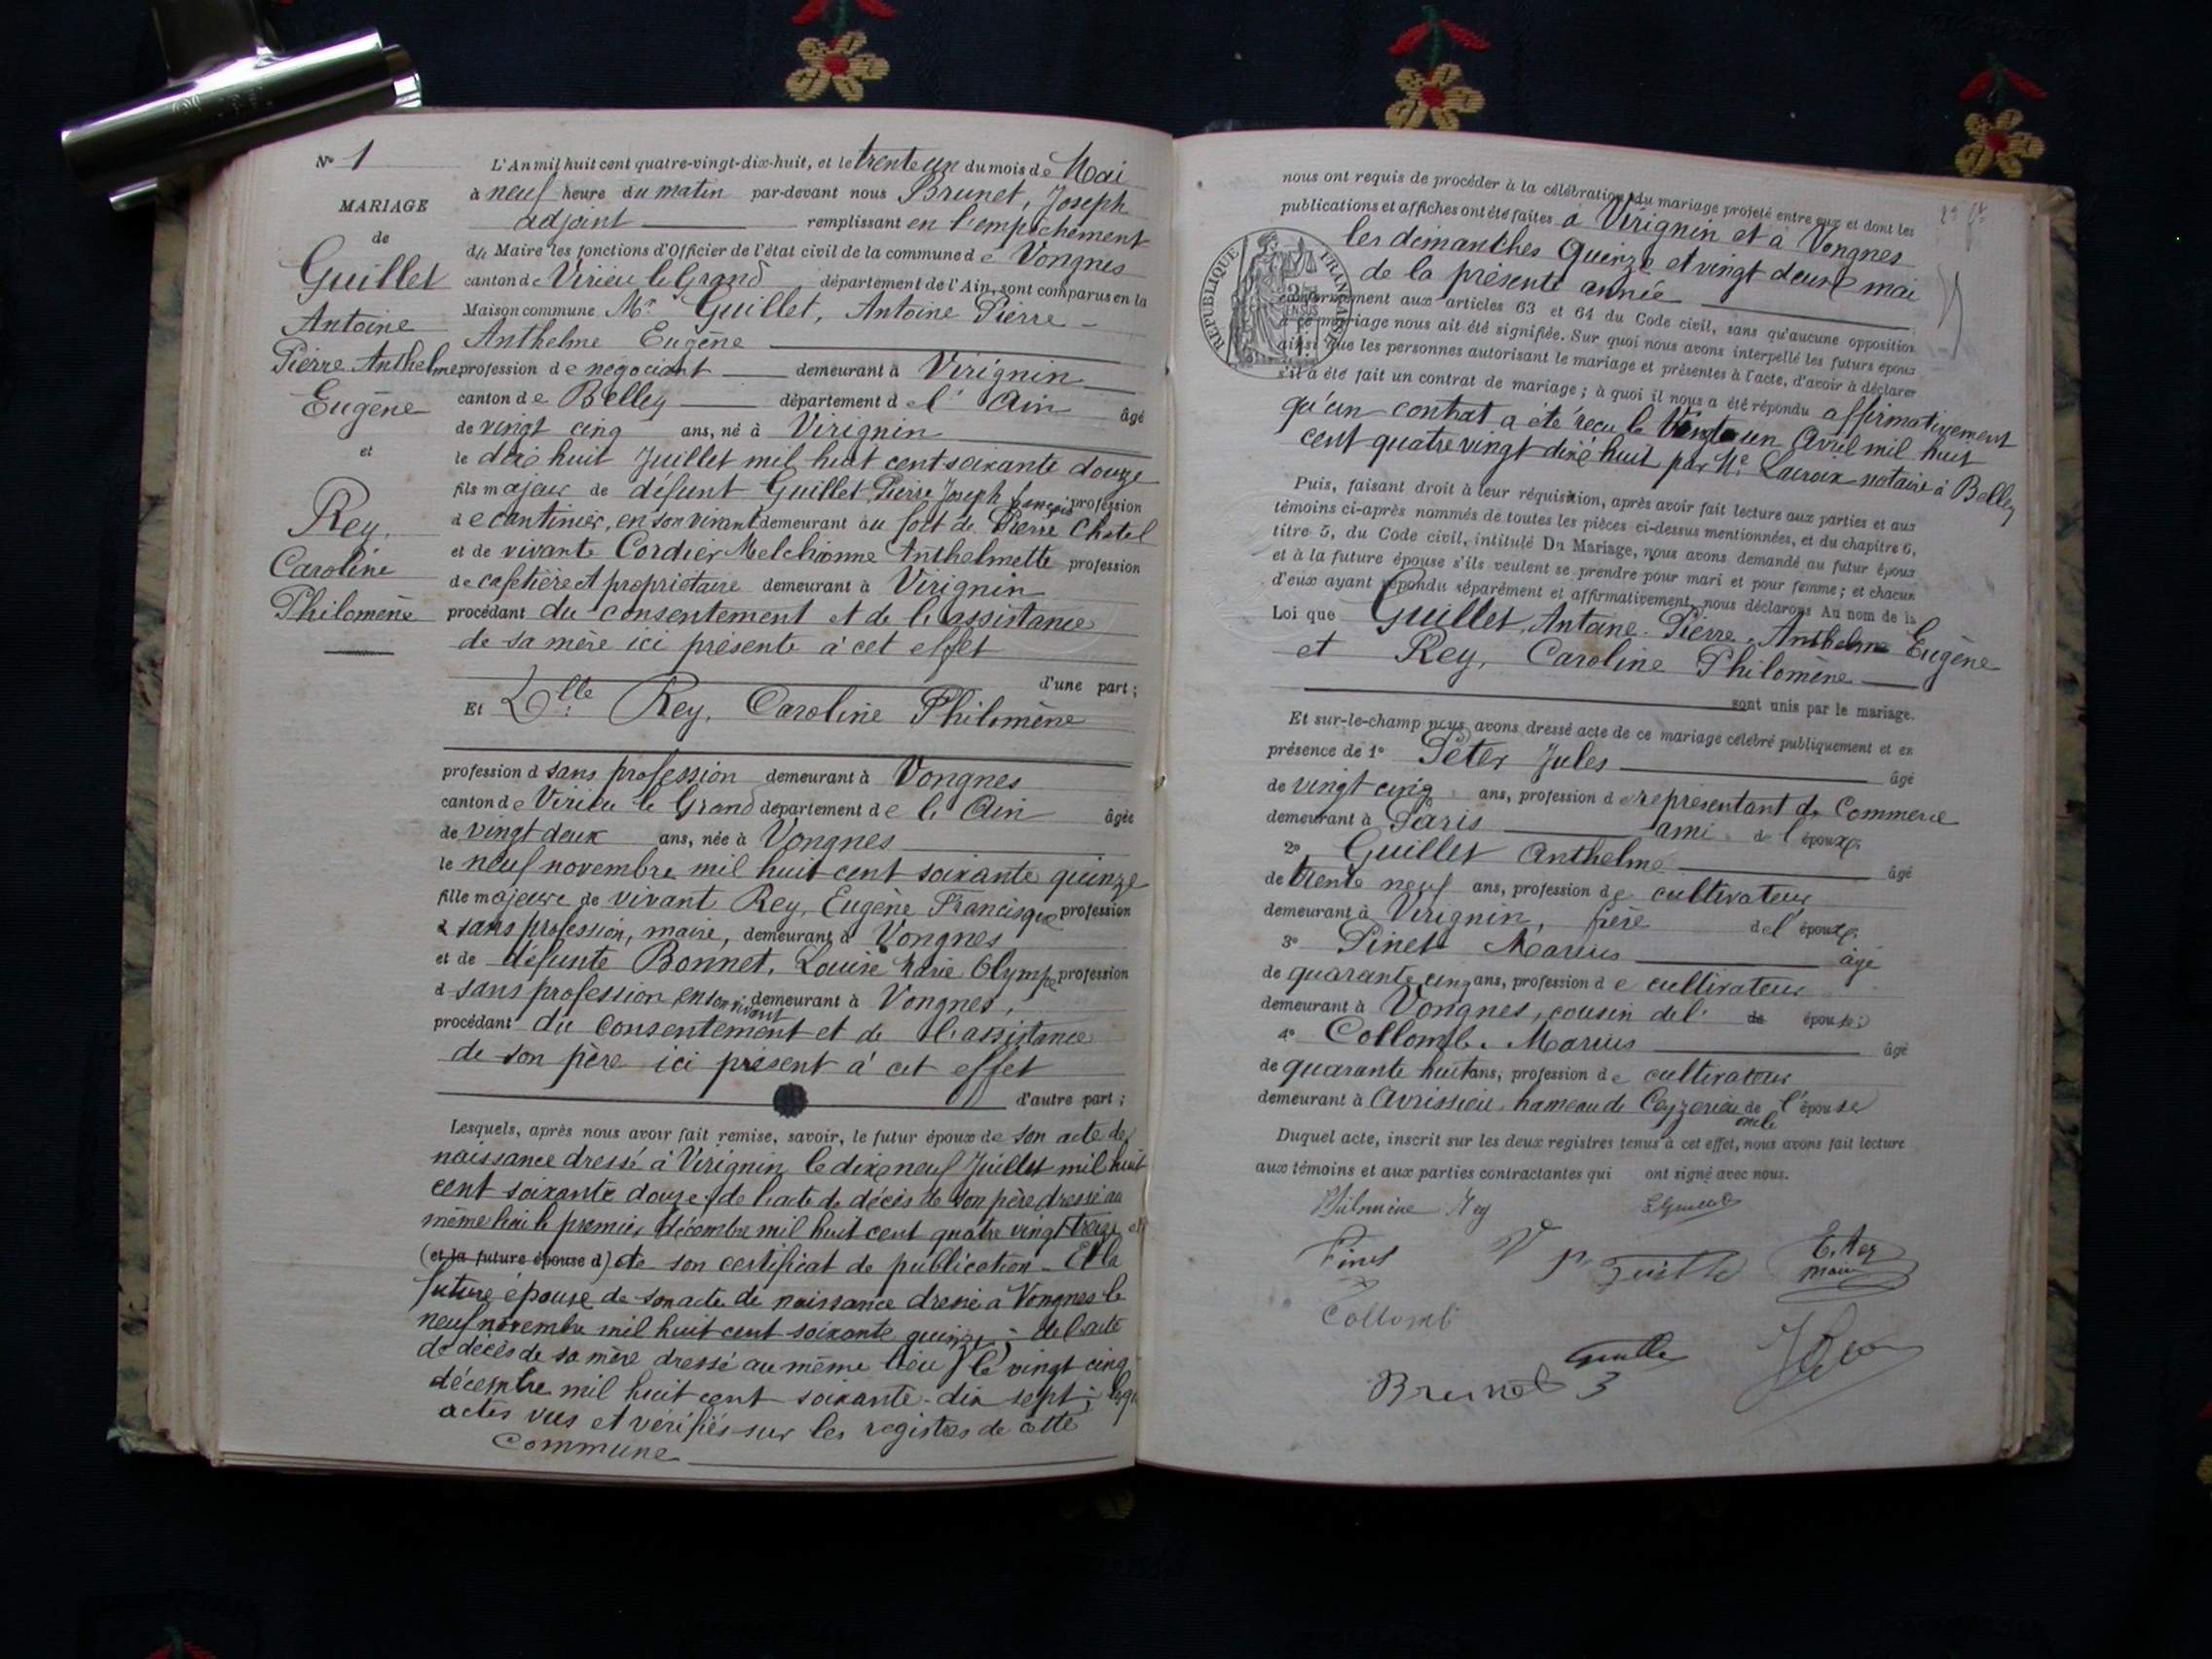 N° 1
MARIAGE
de
Guillet
Antoine
Pierre Anthelme
Eugène
et
Rey,
Caroline
Philomène
L'An mil huit cent quatre-vingt-dix-huit, et le trente un du mois de Mai
à neuf heure du matin par-devant nous Brunet, Joseph
adjoint remplissant en l'empêchement
du Maire les fonctions d'Officier de l'état civil de la commune de Vongnes
canton de Virieu le Grand département de l'Ain, sont comparus en la
Maison commune Mr Guillet, Antoine Pierre
Anthelme Eugène
profession de négociant demeurant à Virignin
canton de Belley département de l'Ain âgé
de vingt cinq ans, né à Virignin
le dix huit Juillet mil huit cent soixante douze
fils majeur de défunt Guillet Pierre Joseph François profession
de cantinier, en son vivant demeurant au fort de Pierre Chatel
et de vivante Cordier Melchionne Anthelmette profession
de cafetière et propriétaire demeurant à Virignin
procédant du consentement et de l'assistance
de sa mère ici présente à cet effet
d'une part ;
Et Dlle Rey, Caroline Philomène
profession d sans profession demeurant à Vongnes
canton de Virieu le Grand département de l'Ain âgée
de vingt deux ans, née à Vongnes
le neuf novembre mil huit cent soixante quinze
fille majeure de vivant Rey, Eugène Francisque profession
d sans profession, maire, demeurant à Vongnes
et de défunte Bonnet, Louise Marie Olympe profession
d sans profession, en son vivant demeurant à Vongnes,
procédant du consentement et de l'assistance
de son père ici présent à cet effet
d'autre part ;
Lesquels, après nous avoir fait remise, savoir, le futur époux de son acte de
naissance dressé à Virignin le dix neuf Juillet mil huit
cent soixante douze, de l'acte de décès de son père dressé au
même lieu le premier décembre mil huit cent quatre vingt treize et
(et la future épouse d) de son certificat de publication - Et la
future épouse de son acte de naissance dressé à Vongnes le
neuf novembre mil huit cent soixante quinze ; de l'acte
de décès de sa mère dressé au même lieu le vingt cinq
décembre mil huit cent soixante-dix sept ;
actes vus et vérifiés sur les registres de cette
commune
nous ont requis de procéder à la célébration du mariage projeté entre eux et dont les
publications et affiches ont été faites à Virignin et à Vongnes
les dimanches Quinze et vingt deux mai
de la présente année
REPUBLIQUE FRANÇAISE
conformément aux articles 63 et 64 du Code civil, sans qu'aucune opposition
à ce mariage nous ait été signifiée. Sur quoi nous avons interpellé les futurs époux
ainsi que les personnes autorisant le mariage et présentes à l'acte, d'avoir à déclarer
s'il a été fait un contrat de mariage ; à quoi il nous a été répondu affirmativement
qu'un contrat a été reçu le Vingt un Avril mil huit
cent quatre vingt dix huit par Me Lacroix notaire à Belley
Puis, faisant droit à leur réquisition, après avoir fait lecture aux parties et aux
témoins ci-après nommés de toutes les pièces ci-dessus mentionnées, et du chapitre 6,
titre 5, du Code civil, intitulé Du Mariage, nous avons demandé au futur époux
et à la future épouse s'ils veulent se prendre pour mari et pour femme ; et chacun
d'eux ayant répondu séparément et affirmativement, nous déclarons Au nom de la
Loi que Guillet, Antoine Pierre, Anthelme Eugène
et Rey, Caroline Philomène
sont unis par le mariage.
Et sur-le-champ nous avons dressé acte de ce mariage célébré publiquement et en
présence de 1° Péter Jules âgé
de vingt cinq ans, profession de représentant de Commerce
demeurant à Paris ami de l'époux.
2° Guillet Anthelme âgé
de trente neuf ans, profession de cultivateur
demeurant à Virignin, frère de l'époux.
3° Pinet Marius âgé
de quarante cinq ans, profession de cultivateur
demeurant à Vongnes, cousin de l' de épouse ;
4° Collomb, Marius âgé
de quarante huit ans, profession de cultivateur
demeurant à Avrissieu, hameau de Ceyzerieu oncle de l'épouse
Duquel acte, inscrit sur les deux registres tenus à cet effet, nous avons fait lecture
aux témoins et aux parties contractantes qui ont signé avec nous.
Philomène Rey
Pinet
E. Rey
maire
Collomb
Brunet